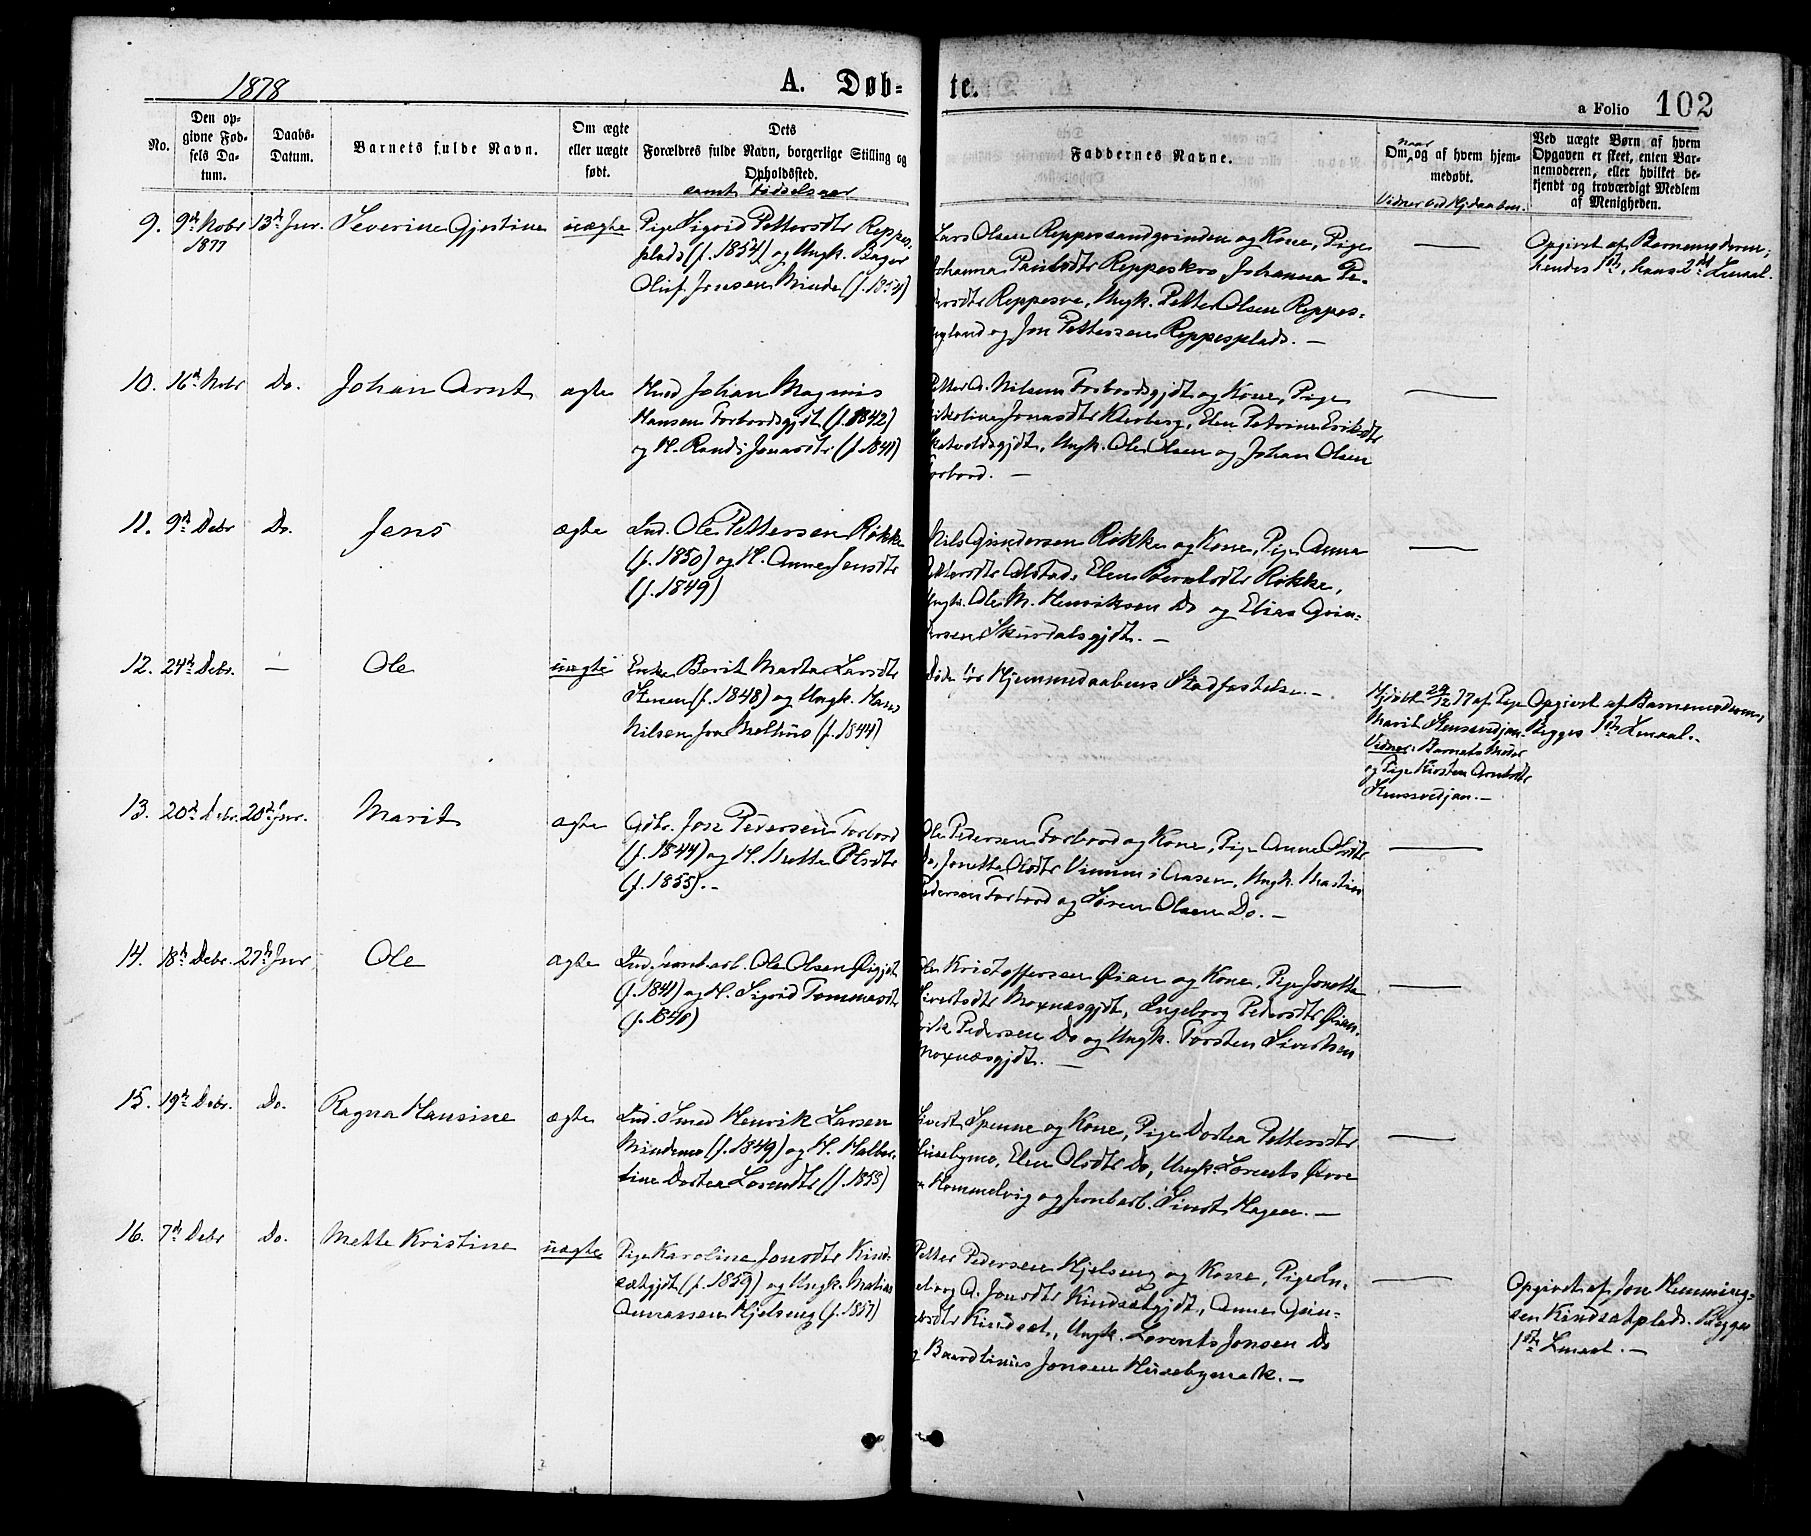 1878
A. Døb-
te.
a Folio 102
No.
Den op-
givne Fød-
sels Da-
tum.
Daabs-
Datum.
Barnets fulde Navn.
Om ægte
eller uægte
født.
Dets
Forældres fulde Navn, borgerlige Stilling og
Opholdssted.
samt Fødselsaar
Faddernes Navne.
naar
Om og af hvem hjem-
medøbt.
Vidner ved Hjdaaben.
Ved uægte Børn af hvem
Opgaven er skeet, enten Bar-
nemoderen, eller hvilket be-
kjendt og troværdigt Medlem
af Menigheden.
9. 9de Nobr 13de Jnr. Severine Gjertine uægte Pige Sigrid Pettersdtr Reppes-
1877
plads (f. 1854) og Ungk. Bager
Oluf Jensen Minde (f. 1853)
Lars Olsen Reppessandgrinden og Kone, Pige
Johanna Paulsdtr Reppeskro Johanna Pe-
dersdtr Reppesve, Ungk. Petter Olsen Reppes-
nyland og Jon Pettersen Reppesplads. —
Opgivet af Barnemoderen,
hendes 1ste, hans 2det Lmaal.
10. 16de Nobr Do. Johan Arnt ægte Husmd Johan Magnus
Hansen Forbordsgjdt (f. 1842)
og H. Randi Jonasdtr (f. 1841)
Petter A. Nilsen Forbordsgjdt og Kone, Pige
Nikoline Jonasdtr Klevberg, Elen Petrine Eriksdtr
Skatvoldsgjdt, Ungk. Ole Olsen og Johan Olsen
Forbord. —
11. 9de Debr Do. Jens ægte Ind. Ole Pettersen Røkke
(f. 1850) og H. Anne Jensdtr
(f. 1849)
Nils Gundersen Røkke og Kone, Pige Anna
Pettersdtr Alstad, Elen Berntsdtr Røkke,
Ungk. Ole M. Henriksen Do og Elias Gun-
dersen Skurdalsgjdt. —
12. 24de Debr. — Ole uægte Enke Berit Marta Larsdtr
Stenen (f. 1848) og Ungk. Hans
Nilsen fra Melhus (f. 1844)
Døde før Hjemmedaabens Stadfæstelse. —
Hjdøbt 29/12 77 af Pige
Marit Stenssvedjan
Vidner: Barnets Moder
og Pige Kirsten Arntsdtr
Stenssvedjan. —
Opgivet af Barnemoderen,
Begges 1ste Lmaal. —
13. 20de Debr. 20de Jnr. Marit ægte Gdbr. Jon Pedersen Forbord
(f. 1844) og H. Mette Olsdtr
(f. 1855). —
Ole Pedersen Forbord og Kone, Pige Anne Olsdtr
Do, Jonetta Olsdtr Vinnum i Aasen, Ungk. Mastin
Pedersen Forbord og Søren Olsen Do. —
14. 18de Debr. 27de Jnr Ole ægte Ind. Jernbarb. Ole Olsen Øigjdt
(f. 1841) og H. Sigrid Tommasdtr
(f. 1846)
Ole Kristoffersen Øian og Kone, Pige Jonetta
Sivertsdtr Moxnæsgjdt, Ingeborg Pedersdtr Øian,
Erik Pedersen Do og Ungk. Torsten Sivertsen
Moxnæsgjdt. —
15. 19de Debr. Do. Ragna Hansine ægte Ind. Smed Henrik Larsen
Mindemo (f. 1849) og H. Halber-
tine Dortea Lorentsdtr (f. 1853)
Sivert Spenne og Kone, Pige Dortea Pettersdtr
Husebymo, Elen Olsdtr Do, Ungk. Lorents Øvre
Hommelvig og Jernbarb. Sivert Hagen. —
16. 7de Debr Do. Mette Kristine uægte Pige Karoline Jonsdtr Kind-
sætgjdt (f. 1859) og Ungk. Matias
Annæssen Hjelseng (f. 1857)
Petter Pedersen Hjelseng og Kone, Pige In-
geborg A. Jonsdtr Kindsætgjdt, Anne Gun-
Kindsæt, Ungk. Lorents Jonsen Do
og Baardlinius Jonsen Husebymark. —
Opgivet af Jon Hemming-
sen Kindsætplads. Begges
1ste Lmaal. —